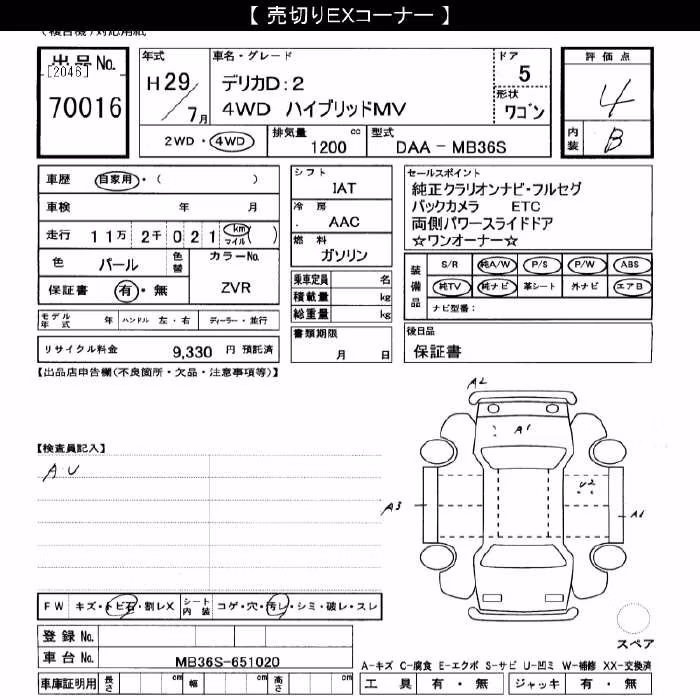 【 売切りEXコーナー 】
(複合機)対応用紙
出品No.
[2046]
70016
年式
H29/7月
車名・グレード
デリカD:2
4WD ハイブリッドMV
ドア
5
形状
ワゴン
評価点
4
内装
B
2WD・4WD
排気量 cc
1200
型式
DAA - MB36S
車歴 自家用・( )
車検 年 月
走行 11万 2千 021 (km マイル)
色 パール 色替
カラーNo.
ZVR
保証書 有・無
モデル年式 年 ハンドル 左・右 ディーラー・並行
リサイクル料金 9,330 円 預託済
シフト
IAT
冷房
AAC
燃料
ガソリン
乗車定員 名
積載量 kg
総重量 kg
書類期限
月 日
セールスポイント
純正クラリオンナビ・フルセグ
バックカメラ ETC
両側パワースライドドア
☆ワンオーナー☆
装備品
S/R 純A/W P/S P/W ABS
純TV 純ナビ 革シート 外ナビ エアB
ナビ型番:
後日品
保証書
【出品店申告欄(不良箇所・欠品・注意事項等)】
【検査員記入】
A・U
A2
A1
A3
U2
A1
FW キズ・トビ石・割レX
シート内装 コゲ・穴・汚レ・シミ・破レ・スレ
登録No.
車台No. MB36S-651020
車庫証明用 長さ cm 幅 cm 高さ cm
スペア
A-キズ C-腐食 E-エクボ S-サビ U-凹ミ W-補修 XX-交換済
工具 有・無 ジャッキ 有・無